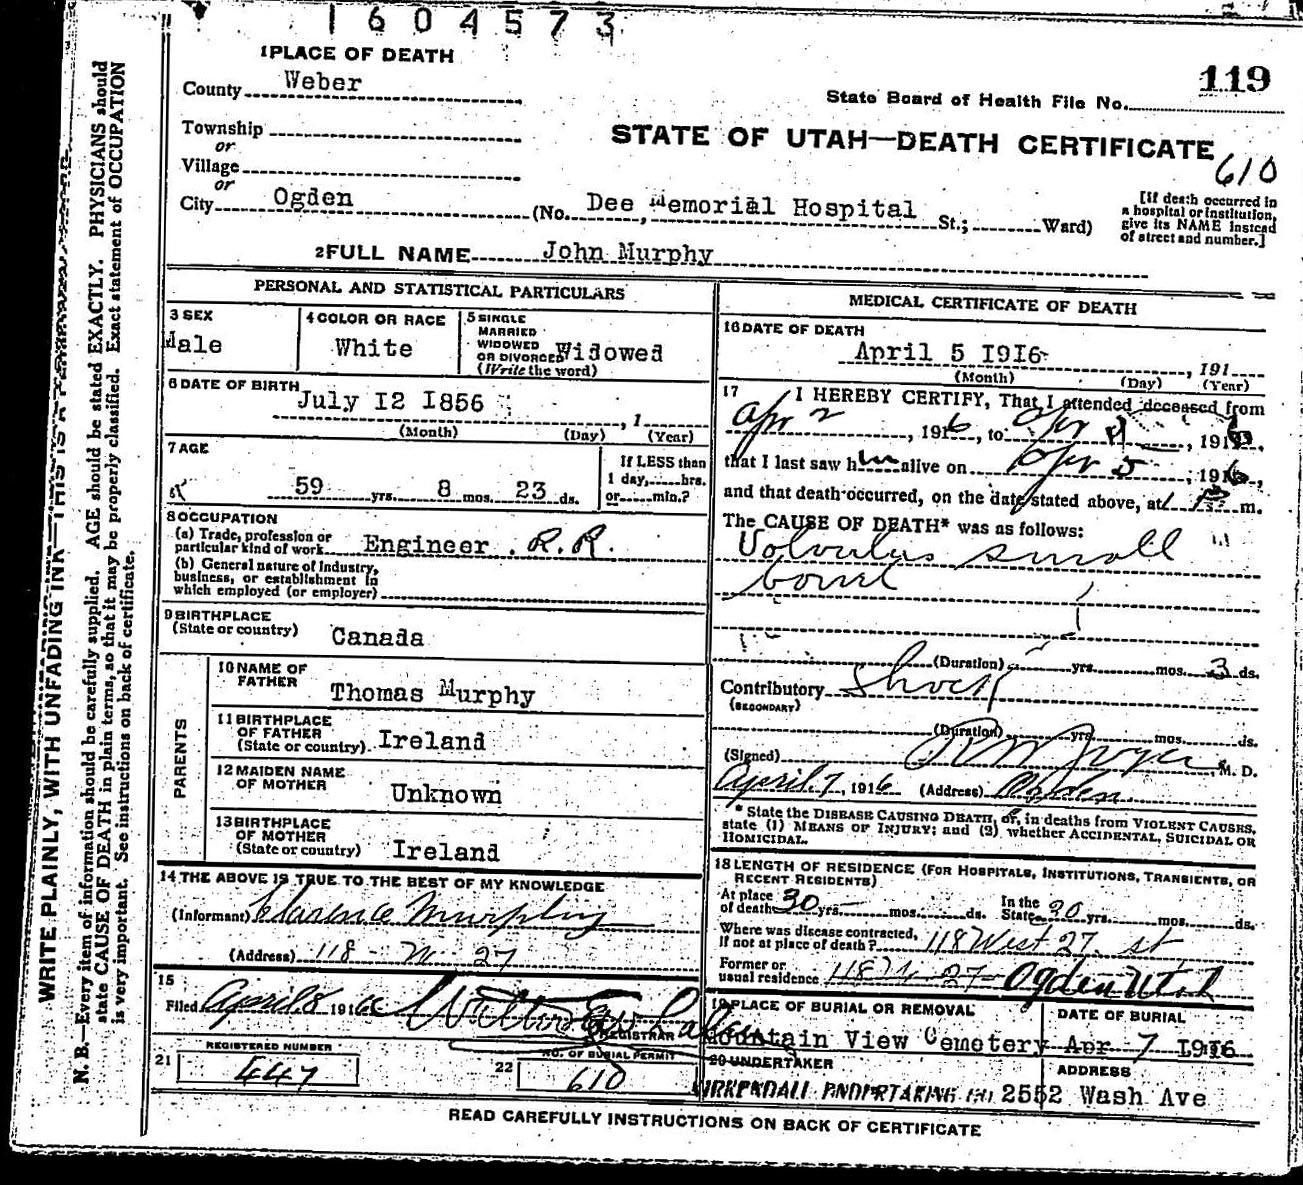 1604573
1 PLACE OF DEATH
119
County Weber
State Board of Health File No.
Township
or
STATE OF UTAH—DEATH CERTIFICATE
610
Village
or
City Ogden (No. Dee Memorial Hospital St.; Ward)
[If death occurred in
a hospital or institution,
give its NAME instead
of street and number.]
2 FULL NAME John Murphy
PERSONAL AND STATISTICAL PARTICULARS
3 SEX
Male
4 COLOR OR RACE
White
5 SINGLE
MARRIED
WIDOWED
OR DIVORCED Widowed
(Write the word)
6 DATE OF BIRTH
July I2 I856 , 1
(Month) (Day) (Year)
7 AGE
59 yrs. 8 mos. 23 ds.
If LESS than
1 day, hrs.
or min.?
8 OCCUPATION
(a) Trade, profession or
particular kind of work Engineer . R.R.
(b) General nature of Industry,
business, or establishment in
which employed (or employer)
9 BIRTHPLACE
(State or country) Canada
PARENTS
10 NAME OF
FATHER
Thomas Murphy
11 BIRTHPLACE
OF FATHER
(State or country) Ireland
12 MAIDEN NAME
OF MOTHER
Unknown
13 BIRTHPLACE
OF MOTHER
(State or country) Ireland
14 THE ABOVE IS TRUE TO THE BEST OF MY KNOWLEDGE
(Informant) Clarence Murphy
(Address) 118 - W. 27
15
Filed April 8 1916
REGISTRAR
21
REGISTERED NUMBER
447
22
NO. OF BURIAL PERMIT
610
MEDICAL CERTIFICATE OF DEATH
16 DATE OF DEATH
April 5 I9I6 , 191
(Month) (Day) (Year)
17 I HEREBY CERTIFY, That I attended deceased from
Apr 2 , 1916, to Apr , 191
that I last saw him alive on Apr 5 , 1916,
and that death occurred, on the date stated above, at m.
The CAUSE OF DEATH* was as follows:
Volvulus small
bowel
(Duration) yrs. mos. 3 ds.
Contributory Shock
(SECONDARY)
(Duration) yrs. mos. ds.
(Signed) M. D.
April 7, 1916 (Address) Ogden
* State the DISEASE CAUSING DEATH, or, in deaths from VIOLENT CAUSES,
state (1) MEANS OF INJURY; and (2) whether ACCIDENTAL, SUICIDAL OR
HOMICIDAL.
18 LENGTH OF RESIDENCE (FOR HOSPITALS, INSTITUTIONS, TRANSIENTS, OR
RECENT RESIDENTS)
At place
of death 30 yrs. mos. ds.
In the
State 30 yrs. mos. ds.
Where was disease contracted,
if not at place of death? 118 West 27. st
Former or
usual residence 118 W 27 - Ogden Utah
19 PLACE OF BURIAL OR REMOVAL
Mountain View Cemetery
DATE OF BURIAL
Apr 7 I9I6
20 UNDERTAKER
KIRKENDALL UNDERTAKING CO.
ADDRESS
2552 Wash Ave
READ CAREFULLY INSTRUCTIONS ON BACK OF CERTIFICATE
WRITE PLAINLY, WITH UNFADING INK—THIS IS A PERMANENT RECORD
N. B.—Every item of information should be carefully supplied. AGE should be stated EXACTLY. PHYSICIANS should
state CAUSE OF DEATH in plain terms, so that it may be properly classified. Exact statement of OCCUPATION
is very important. See instructions on back of certificate.